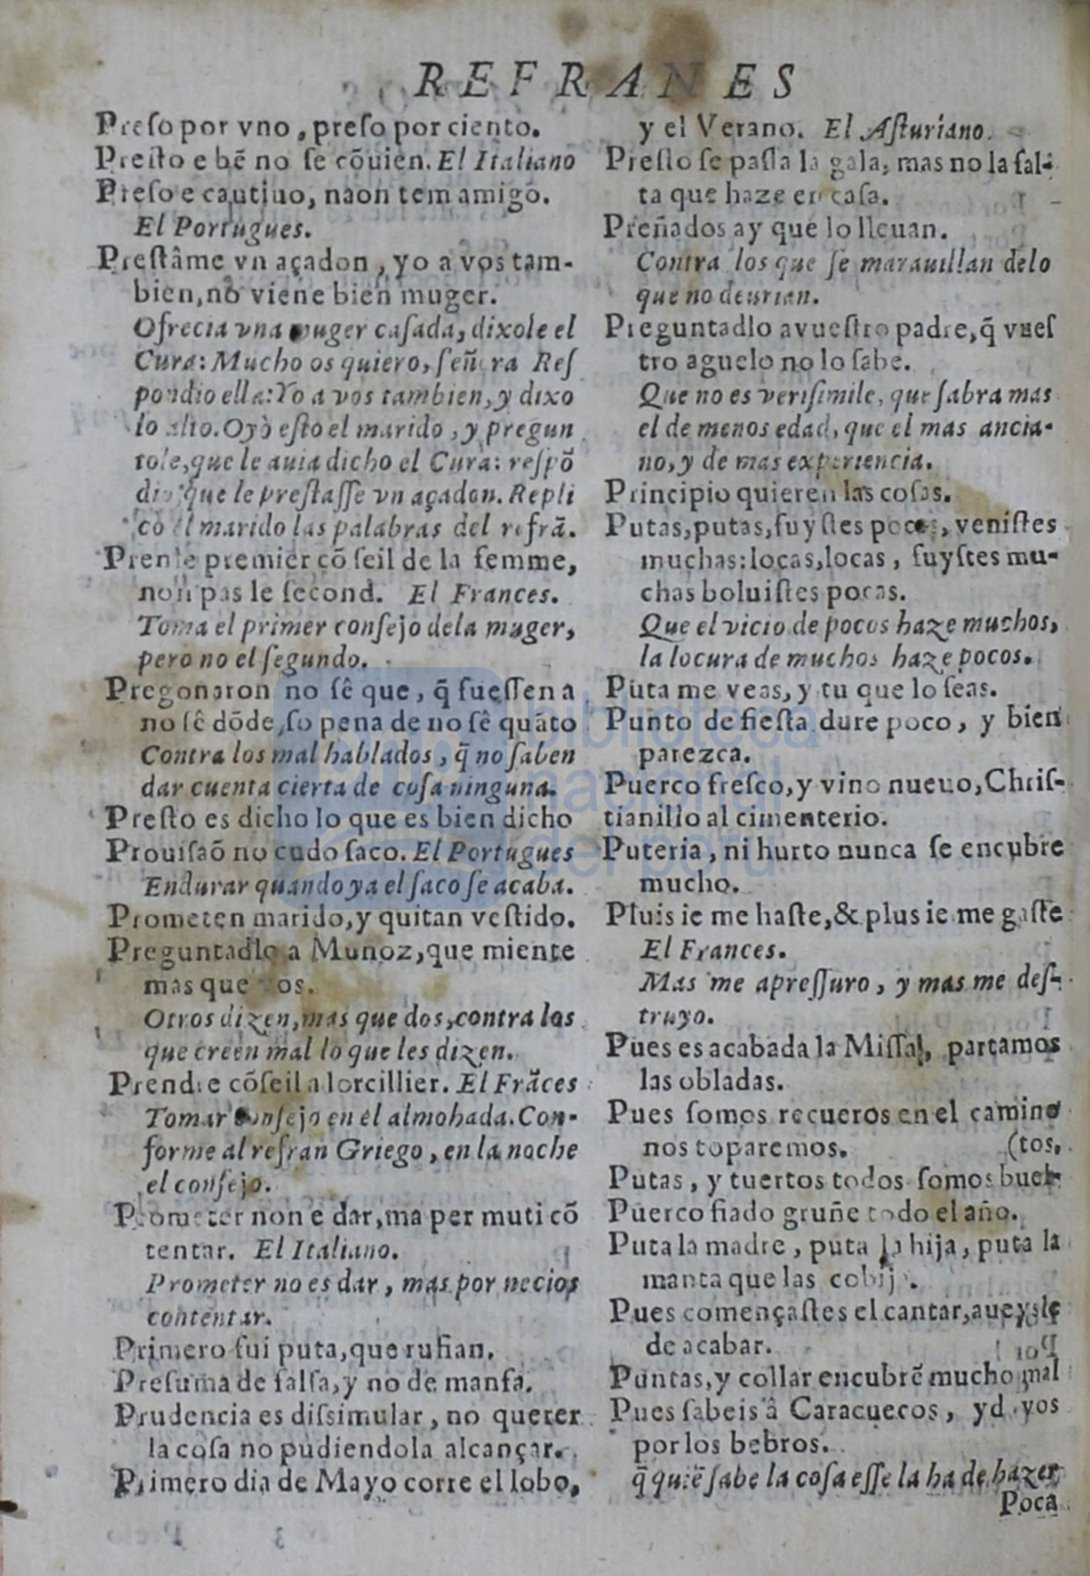 REFRANES
Preso por vno, preso por ciento.
Presto e bẽ no se cõuien. El Italiano
Preso e cautiuo, naon tem amigo.
El Portugues.
Prestâme vn açadon, yo a vos tam-
bien, no viene bien muger.
Ofrecia vna muger casada, dixole el
Cura: Mucho os quiero, señora Res
pondio ella: Yo a vos tambien, y dixo
lo alto. Oyò esto el marido, y pregun
tole, que le auia dicho el Cura: respõ
dio que le prestasse vn açadon. Repli
cò el marido las palabras del refrã.
Prende premier cõseil de la femme,
non pas le second. El Frances.
Toma el primer consejo dela muger,
pero no el segundo.
Pregonaron no sê que, q̃ fuessen a
no sê dõde, so pena de no sê quãto
Contra los mal hablados, q̃ no saben
dar cuenta cierta de cosa ninguna.
Presto es dicho lo que es bien dicho
Prouisaõ no cudo saco. El Portugues
Endurar quando ya el saco se acaba.
Prometen marido, y quitan vestido.
Preguntadlo a Munoz, que miente
mas que vos.
Otros dizen, mas que dos, contra los
que creen mal lo que les dizen.
Prendre cõseil a lorcillier. El Frãces
Tomar consejo en el almohada. Con-
forme al refran Griego, en la noche
el consejo.
Prometer non e dar, ma per muti cõ
tentar. El Italiano.
Prometer no es dar, mas por necios
contentar.
Primero fui puta, que rufian.
Presuma de falsa, y no de mansa.
Prudencia es dissimular, no querer
la cosa no pudiendola alcançar.
Primero dia de Mayo corre el lobo,
y el Verano. El Asturiano.
Presto se passa la gala, mas no la fal-
ta que haze en casa.
Preñados ay que lo lleuan.
Contra los que se marauillan delo
que no deurian.
Preguntadlo a vuestro padre, q̃ vues
tro aguelo no lo sabe.
Que no es verisimile, que sabra mas
el de menos edad, que el mas ancia-
no, y de mas experiencia.
Principio quieren las cosas.
Putas, putas, fuystes pocas, venistes
muchas: locas, locas, fuystes mu-
chas boluistes pocas.
Que el vicio de pocos haze muchos,
la locura de muchos haze pocos.
Puta me veas, y tu que lo seas.
Punto de fiesta dure poco, y bien
parezca.
Puerco fresco, y vino nueuo, Chris-
tianillo al cimenterio.
Puteria, ni hurto nunca se encubre
mucho.
Pluis ie me haste, & plus ie me gaste
El Frances.
Mas me apressuro, y mas me des-
truyo.
Pues es acabada la Missa, partamos
las obladas.
Pues somos recueros en el camino
nos toparemos. (tos,
Putas, y tuertos todos somos buel-
Puerco fiado gruñe todo el año.
Puta la madre, puta la hija, puta la
manta que las cobija.
Pues començastes el cantar, aueysle
de acabar.
Puntas, y collar encubrẽ mucho mal
Pues sabeis â Caracuecos, yd vos
por los bebros.
q̃ quiẽ sabe la cosa esse la ha de hazer
Poca
biblioteca
nacional
del perú